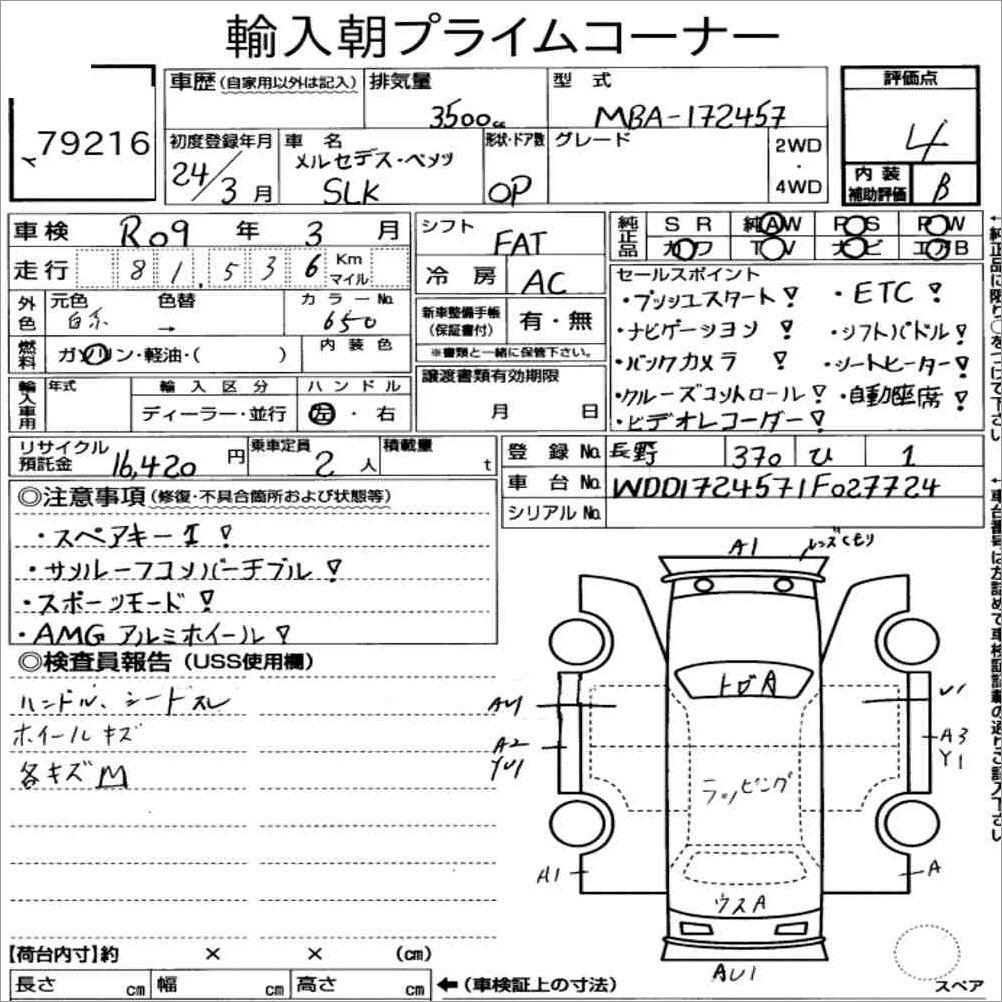 輸入朝プライムコーナー
79216
車歴 (自家用以外は記入) 排気量 3500cc 型式 MBA-172457 評価点 4
初度登録年月 24/3月 車名 メルセデス・ベンツ SLK 形状・ドア数 OP グレード 2WD・4WD 内装補助評価 B
車検 R09年 3月 シフト FAT 純正品 SR 純AW PS PW
走行 81,536 Km マイル 冷房 AC カワ TV ナビ エアB
外色 元色 白系 色替 → カラーNo. 650
燃料 ガソリン・軽油・( ) 内装色
新車整備手帳(保証書付) 有・無
※書類と一緒に保管下さい。
セールスポイント
・プッシュスタート! ・ETC!
・ナビゲーション! ・シフトパドル!
・バックカメラ! ・シートヒーター!
・クルーズコントロール! ・自動座席!
・ビデオレコーダー!
輸入車用 年式 輸入区分 ディーラー・並行 ハンドル 左・右
譲渡書類有効期限 月 日
リサイクル預託金 16,420円 乗車定員 2人 積載量 t
登録No. 長野 370 ひ 1
車台No. WDD1724571F027724
シリアルNo.
◎注意事項 (修復・不具合箇所および状態等)
・スペアキー1!
・サンルーフコンバーチブル!
・スポーツモード!
・AMGアルミホイール!
◎検査員報告 (USS使用欄)
ハンドル、シートスレ
ホイールキズ
各キズM
A1 レンズくもり
トビA
AU1
U1
A2
YU1
A3
Y1
ラッピング
A1
A
ウスA
AU1
スペア
【荷台内寸】約 × × (cm)
長さ cm 幅 cm 高さ cm ←(車検証上の寸法)